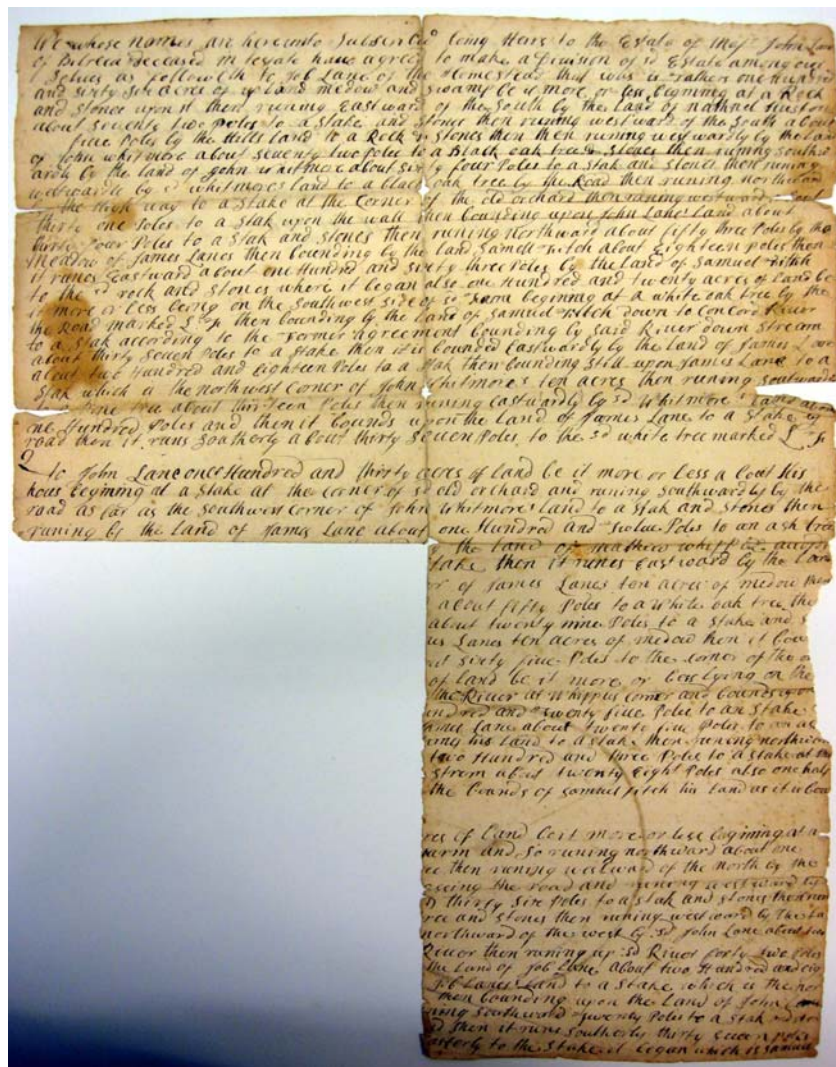 We whose names are hereunto Subscribed being Heirs to the Estate of Maj John Lane
of Bilrica deceased Intestate have agreed to make a Division of sd Estate among our
Selves as followeth to Job Lane of the Homestead that was is rathers one Hundred
and sixty six acres of up land medow and swamp be it more or less beginning at a Rock
and stones upon it then runing Eastward of the South by the Land of
about seventy two Poles to a stake and stones then runing westward of the South about
five Poles by the Hills land to a Rock & stones then then runing westwardly by the Land
of John whitmore about seventy two poles to a Black oak tree & stones then runing southw
ardly by the land of John whitmore about sixty four Poles to a stak and stones then runing
westwardle by sd whitmores land to a black oak tree by the Road then runing northward
the High way to a stake at the Corner of the old orchard then runing westward about
thirty one Poles to a stak upon the wall then bounding upon John Lanes Land about
thirty four Poles to a stak and stones then runing northward about fifty three Poles by the
meadow of James Lanes then bounding by the land Samell Fitch about Eighteen poles then
it runes Eastward about one Hundred and sixty three Poles by the Land of Samuel Fitch
to the sd rock and stones where it began also one Hundred and twenty acres of land be
it more or less being on the Southwest side of sd Farm beginning at a white oak tree by the
the Road marked L then bounding by the Land of Samuel Fitch down to Concord River
to a stak according to the Former Agreement bounding by said River down stream
about thirty seven Poles to a stake then it is bounded Eastwardly by the Land of James Lane
about two Hundred and Eighteen Poles to a stak then bounding still upon James Lane to a
stak which is the northwest Corner of John Whitmores ten acres then runing southward
Pine tree about thirteen Poles then runing eastwardly by sd Whitmores Land about
one Hundred Poles and then it bounds upon the Land of James Lane to a stake by
road then it runs Southerly about thirty seven Poles, to the sd white tree marked L
2
To John Lane once Hundred and thirty acres of land be it more or Less a bout His
hous begining at a stake at the Corner of sd old orchard and runing southwardly by the
road as far as the southwest Corner of John Whitmores Land to a stak and stones then
runing by the Land of James Lane about one Hundred and twelve Poles to an ash tree
the land of mathew whipple
stake then it runes Eastward by the Land
of James Lanes ten acres of medow then
about fifty Poles to a White oak tree then
about twenty nine Poles to a stake and
Lanes ten acres of medow hen it
sixty five Poles to the corner of the
of land be it more or less lying on the
the River at Whipples corner and bounds upon
and twenty five Poles to an stake
Lane about twenty five Poles to an
his Land to a stake then runing northward
two Hundred and three Poles to a stake at the
strem about twenty Eight Poles also one half
the bounds of Samuel fitch his land as it is
of Land be it more or less begining at a
farm and so runing northward about one
then runing westward of the north by the
the road and runing westward by
thirty six Poles to a stak and stones then
and stones then runing westward by the
northward of the west by sd John Lane about
River then runing up sd River forty two Poles
the Land of Job Lane about two Hundred and
Job Lanes Land to a stake which is the
then bounding upon the Land of John
runing Southward twenty Poles to a stak
then it runs Southerly thirty seven poles
to the stake it began which is Samuel